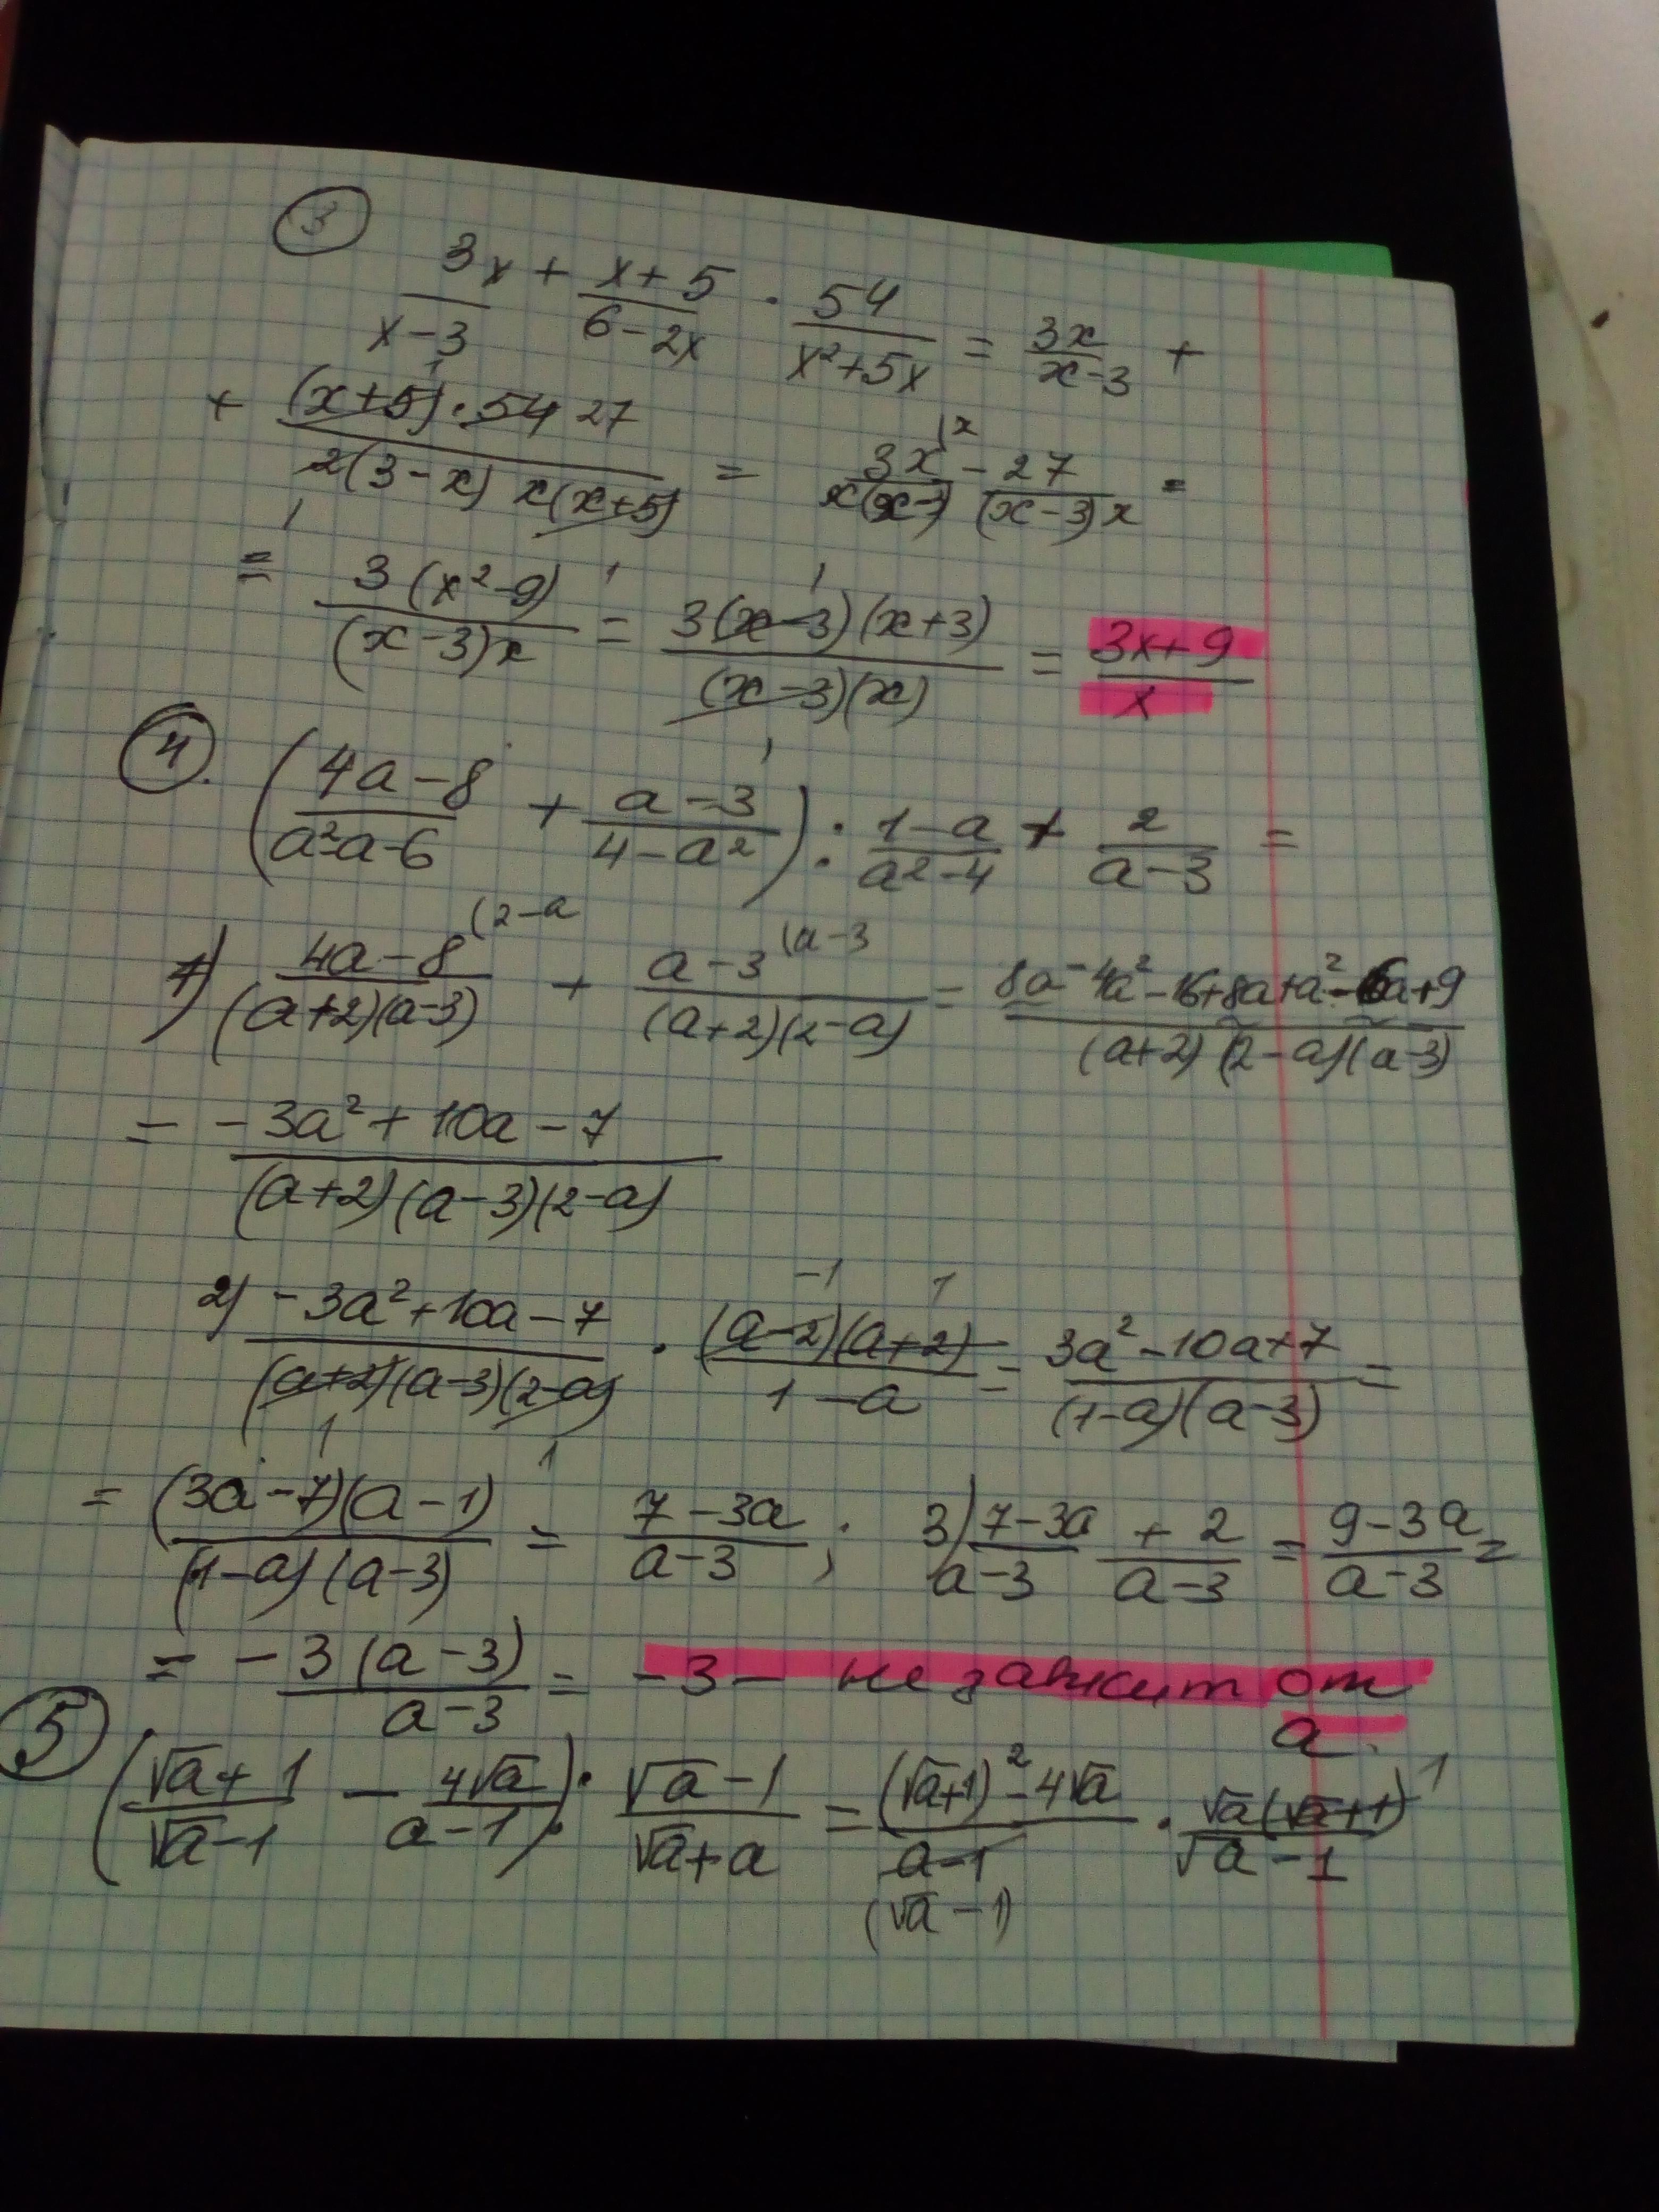 3
3x/(x-3) + (x+5)/(6-2x) · 54/(x²+5x) = 3x/(x-3) +
+ (x+5)·54 27/(2(3-x) x(x+5)) = 3x (x/(x(x-3)) - 27/((x-3)x) =
= 3(x²-9)/((x-3)x) = 3(x-3)(x+3)/((x-3)(x)) = (3x+9)/x
4. ((4a-8)/(a²-a-6) + (a-3)/(4-a²)) : (1-a)/(a²-4) + 2/(a-3) =
1) 4a-8 (2-a/((a+2)(a-3)) + a-3 (a-3/((a+2)(2-a)) = (8a-4a²-16+8a+a²-6a+9)/((a+2)(2-a)(a-3))
= (-3a²+10a-7)/((a+2)(a-3)(2-a))
2) (-3a²+10a-7)/((a+2)(a-3)(2-a)) · (a-2)(a+2)/(1-a) = (3a²-10a+7)/((1-a)(a-3)) =
= (3a-7)(a-1)/((1-a)(a-3)) = (7-3a)/(a-3); 3) (7-3a)/(a-3) + 2/(a-3) = (9-3a)/(a-3) =
= -3(a-3)/(a-3) = -3 - не зависит от
a.
5
((√a+1)/(√a-1) - 4√a/(a-1)) : (√a-1)/(√a+a) = ((√a+1)²-4√a)/(a-1) · √a(√a+1) 1/(√a-1)
(√a-1)